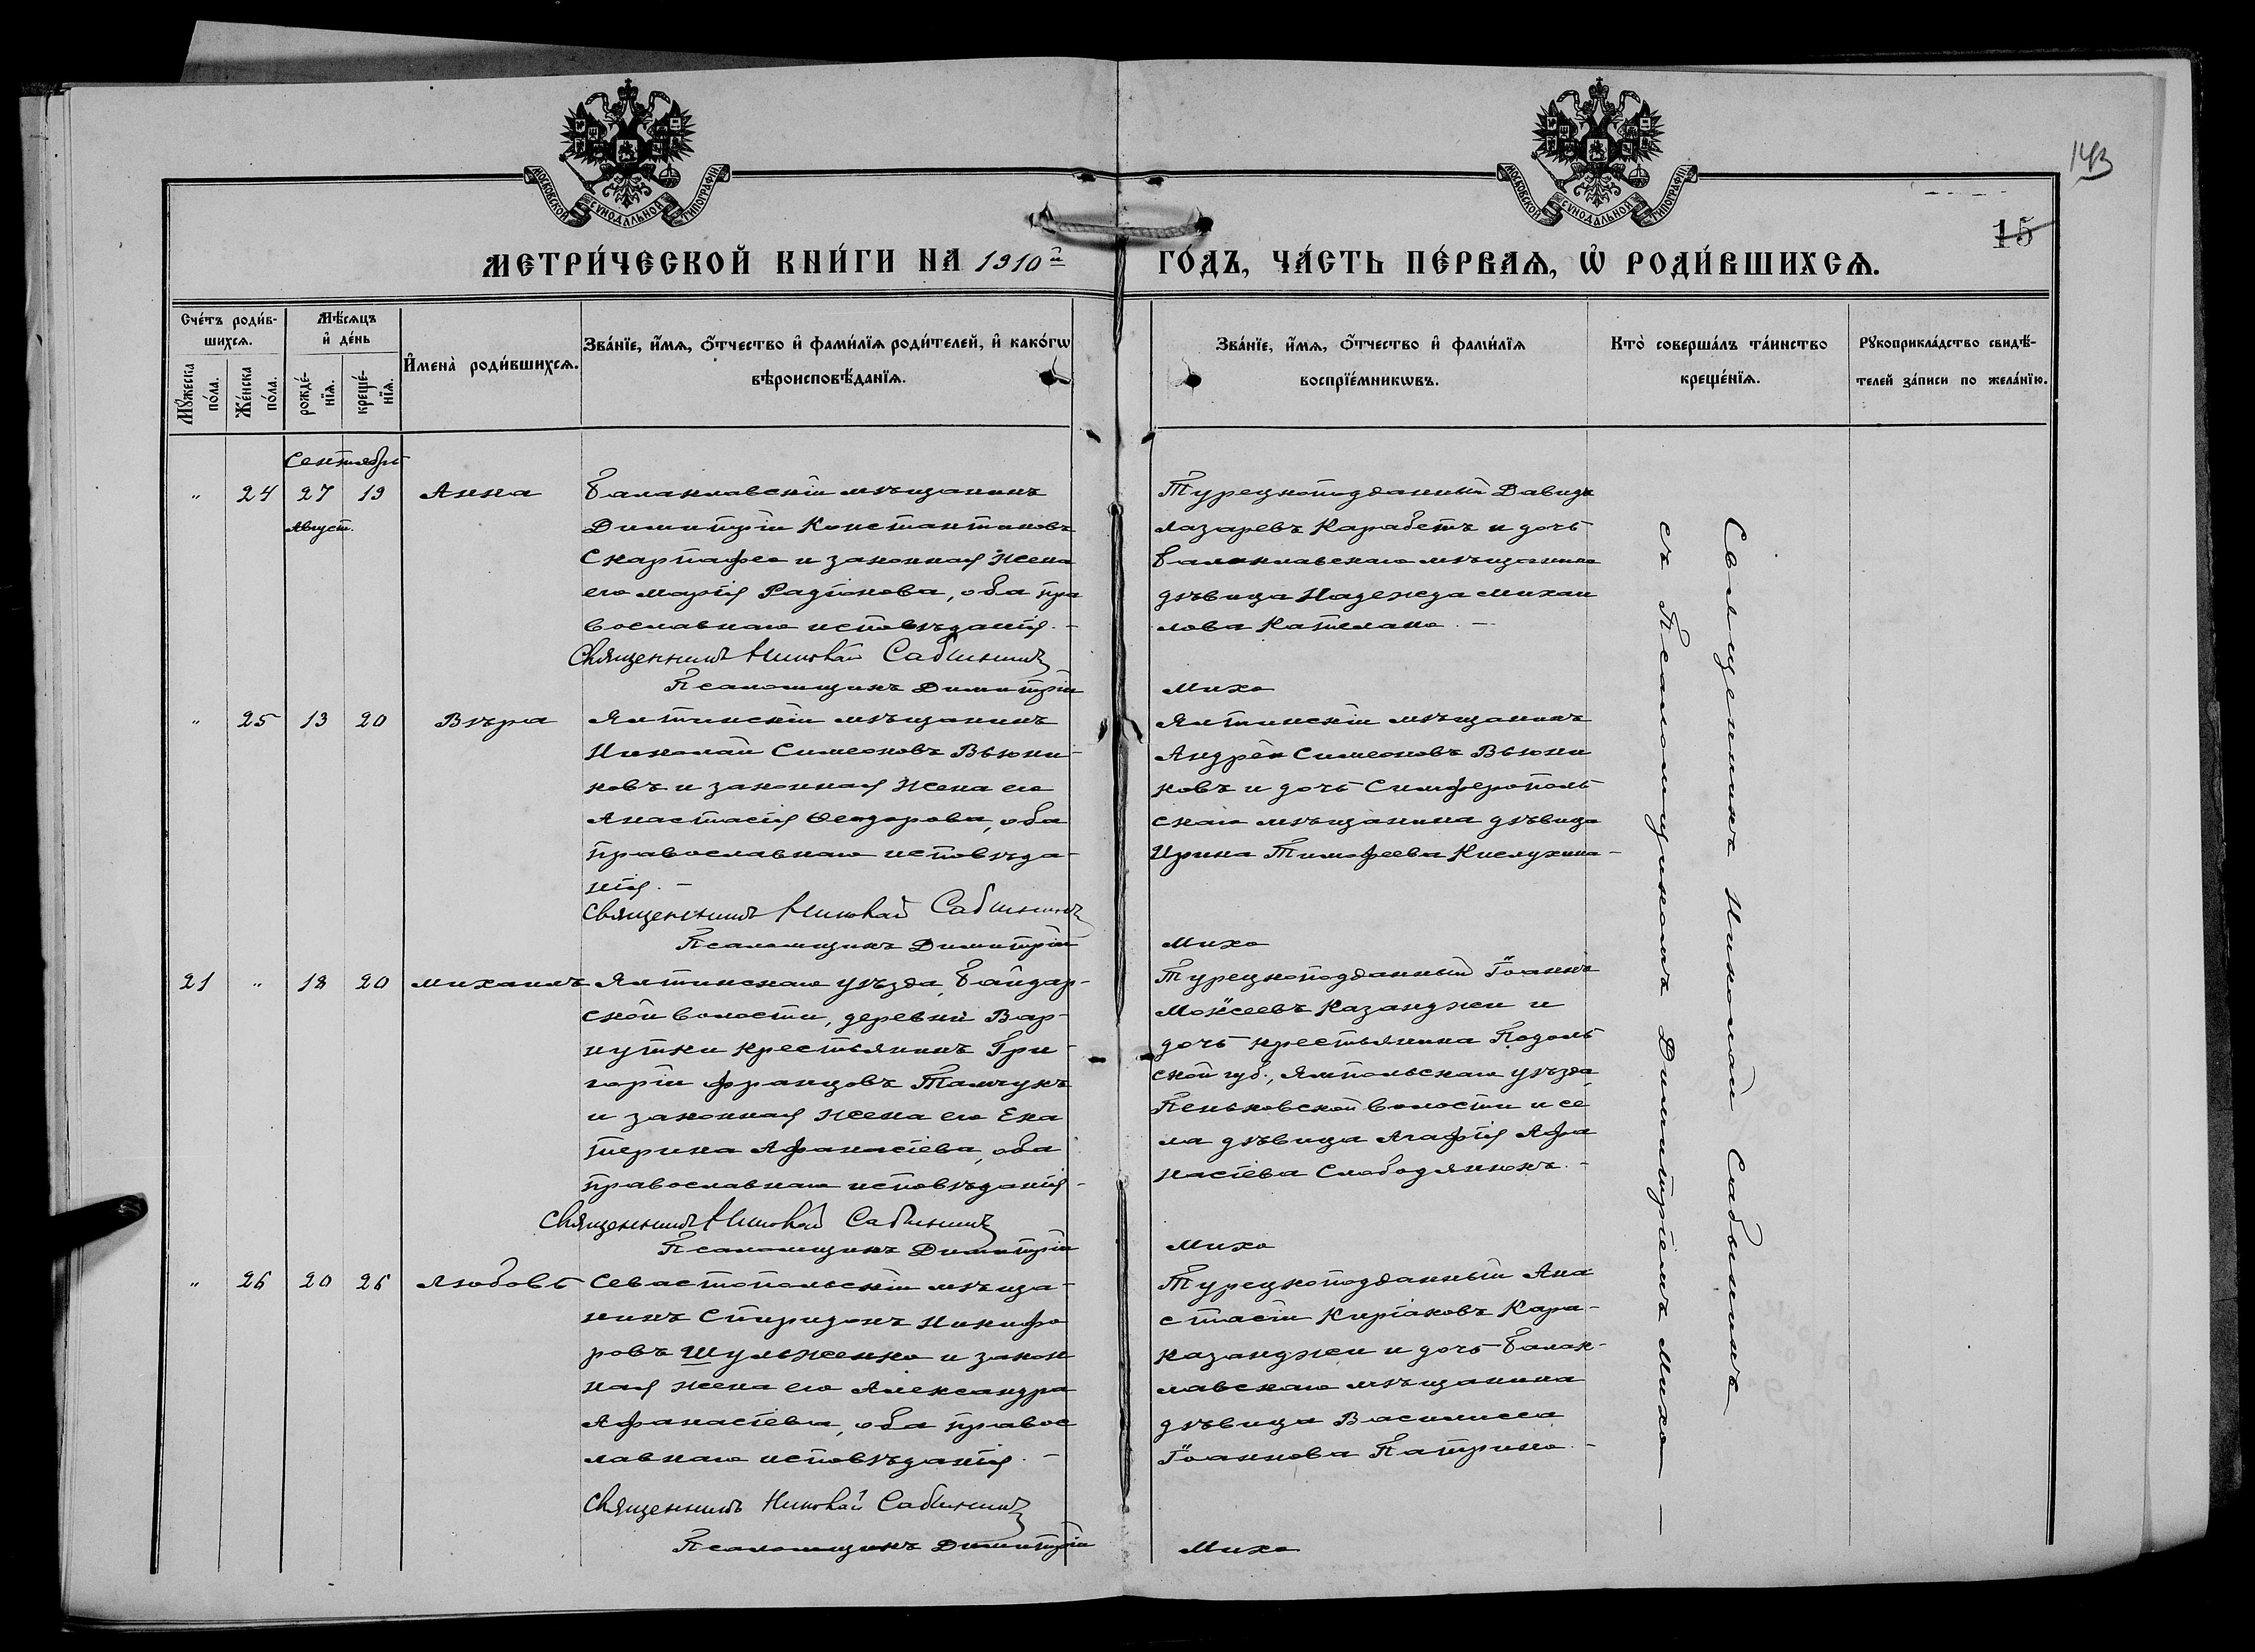 143
15
МОСКОВСКОЙ СѴНОДАЛЬНОЙ ТИПОГРАФІИ
МОСКОВСКОЙ СѴНОДАЛЬНОЙ ТИПОГРАФІИ
МЕТРИ́ЧЕСКОЙ КНИ́ГИ НА 1910й ГО́ДЪ, ЧА́СТЬ ПЕ́РВАѦ, Ѡ҆ РОДИ́ВШИХСѦ.
Сче́тъ роди́в-
шихсѧ.
Мꙋ́жеска по́ла.
Же́нска по́ла.
Мѣ́сѧцъ
и҆ де́нь
рожде́-нїѧ.
креще́-нїѧ.
И҆мена̀ роди́вшихсѧ.
Зва́нїе, и҆́мѧ, ѻ҆́тчество и҆ фами́лїѧ роди́телей, и҆ како́гѡ
вѣроисповѣ́данїѧ.
Зва́нїе, и҆́мѧ, ѻ҆́тчество и҆ фами́лїѧ
воспрїе́мникѡвъ.
Кто̀ соверша́лъ та́инство
креще́нїѧ.
Рꙋкоприкла́дство свидѣ́-
телей за́писи по жела́нїю.
Сентябрь
" 24 27 19 Анна
Август.
Балаклавскій мѣщанинъ
Димитрій Константиновъ
Скарпафео и законная жена
его Марія Радіонова, оба пра
вославнаго исповѣданія. -
Священникъ Николай Сабининъ
Псаломщикъ Димитрій Михо
Турецкоподданный Давидъ
Лазаревъ Карабетъ и дочь
Балаклавскаго мѣщанина
дѣвица Надежда Михаи
лова Кателано. -
" 25 13 20 Вѣра
Ялтинскій мѣщанинъ
Николай Симеоновъ Вьюни-
ковъ и законная жена его
Анастасія Ѳеодорова, оба
православнаго исповѣда-
нія. -
Священникъ Николай Сабининъ
Псаломщикъ Димитрій Михо
Ялтинскій мѣщанинъ
Андрей Симеоновъ Вьюни
ковъ и дочь Симферополь
скаго мѣщанина дѣвица
Ирина Тимофеева Кислухина -
21 " 18 20 Михаилъ
Ялтинскаго уѣзда, Байдар-
ской волости, деревни Вар-
нутки крестьянинъ Гри-
горій Францовъ Тамчукъ
и законная жена его Ека
терина Афанасіева, оба
православнаго исповѣданія -
Священникъ Николай Сабининъ
Псаломщикъ Димитрій Михо
Турецкоподданный Іоаннъ
Моисеевъ Казанджи и
дочь крестьянина Подоль
ской губ., Ямпольскаго уѣзда,
Пеньковской волости и се
ла дѣвица Агафія Афа
насіева Слободянюкъ. -
" 26 20 26 Любовь
Севастопольскій мѣща-
нинъ Спиридонъ Никифо
ровъ Шульженко и закон
ная жена его Александра
Афанасіева, оба правос
лавнаго исповѣданія. -
Священникъ Николай Сабининъ
Псаломщикъ Димитрій Михо
Турецкоподданный Ана
стасій Киріаковъ Кара-
казанджи и дочь Балак-
лавскаго мѣщанина
дѣвица Василисса
Іоаннова Патрино. -
Священникъ Николай Сабининъ
съ Псаломщикомъ Димитріемъ Михо —